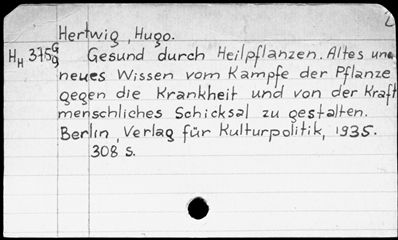 Hertwig, Hugo.
HH 375 G
g
Gesund durch Heilpflanzen. Altes und
neues Wissen vom Kampfe der Pflanze
gegen die Krankheit und von der Kraft
menschliches Schicksal zu gestalten.
Berlin, Verlag für Kulturpolitik, 1935.
308 S.